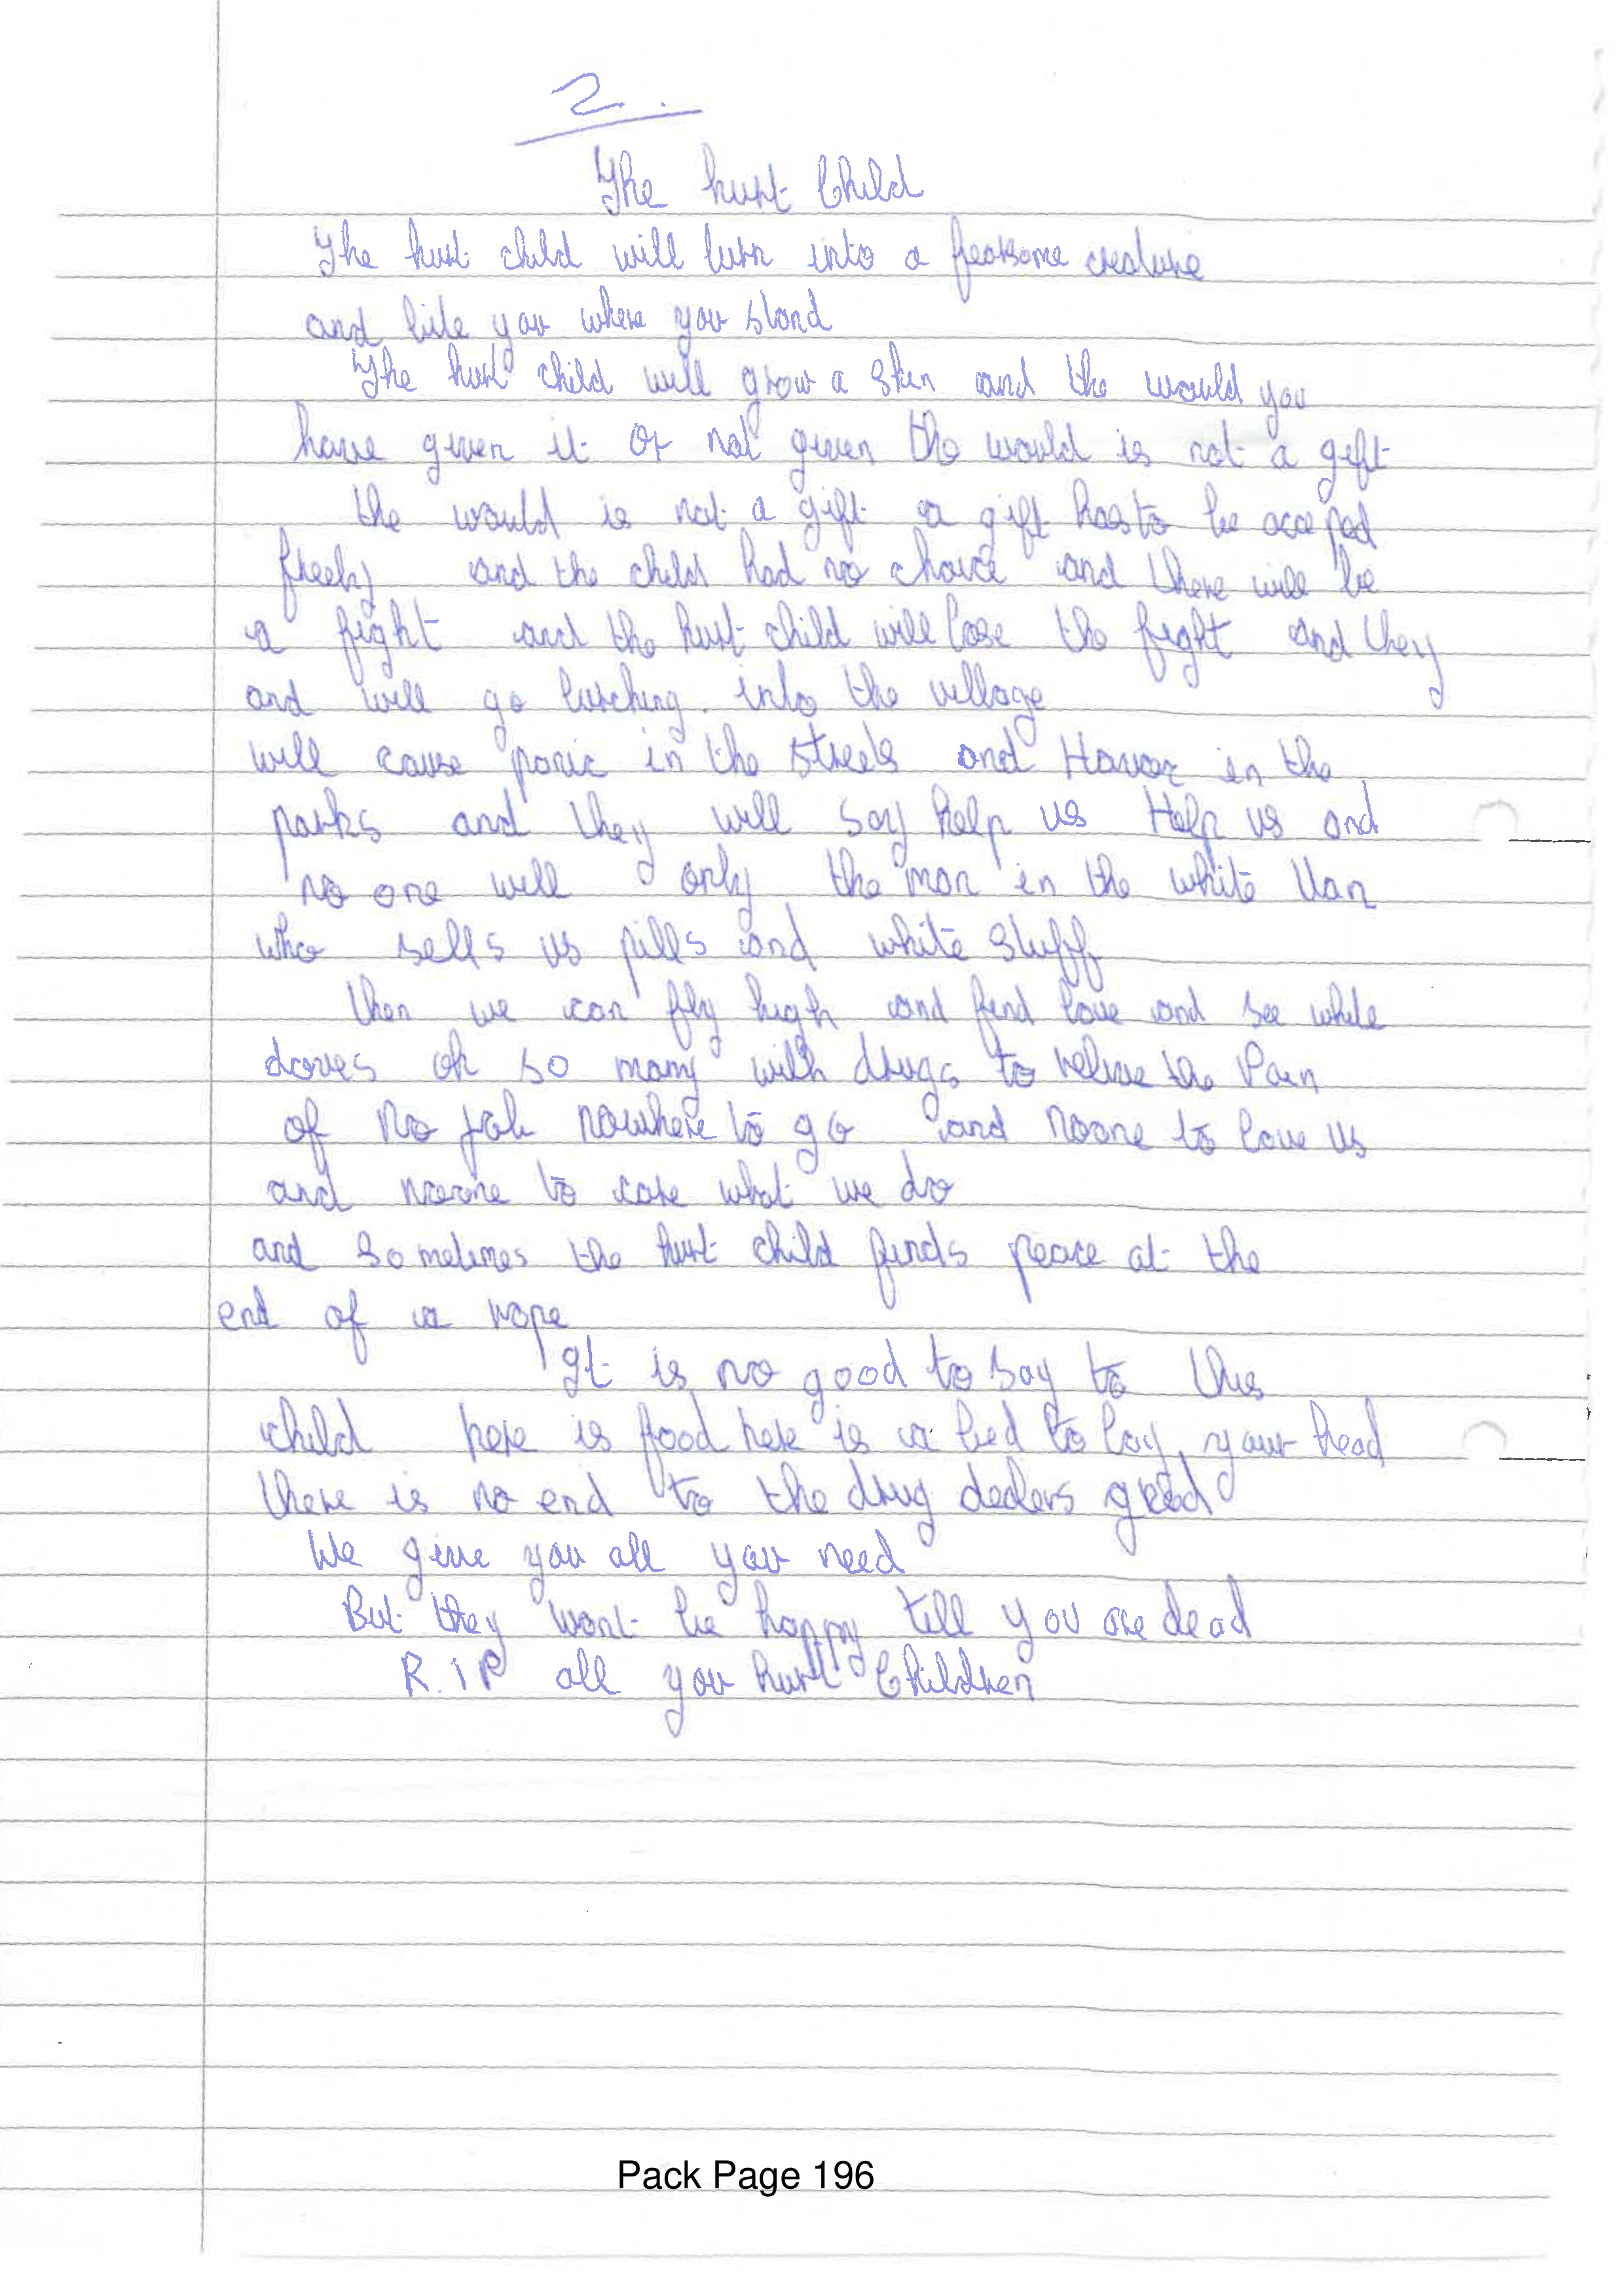 2.
The hurt Child
The hurt child will turn into a fearsome creature
and bite you where you stand
The hurt child will grow a skin and the would you
have given it or not given the would is not a gift
the would is not a gift a gift has to be acceped
freely and the child had no choice and there will be
a fight and the hurt child will lose the fight and they
and will go lurching. into the village
will cause panic in the streets and Havoc in the
parks and they will say help us Help us and
no one will only the man in the white Van
who sells us pills and white stuff
then we can fly high and find love and see white
doves oh so many with drugs to relive the Pain
of No job nowhere to go and noone to love us
and noone to care what we do
and sometimes the hurt child finds peace at the
end of a rope
It is no good to say to this
child here is food here is a bed to lay your head
there is no end to the drug dealers greed
We give you all you need
But they wont be happy till you are dead
R.IP all you hurt Children
Pack Page 196